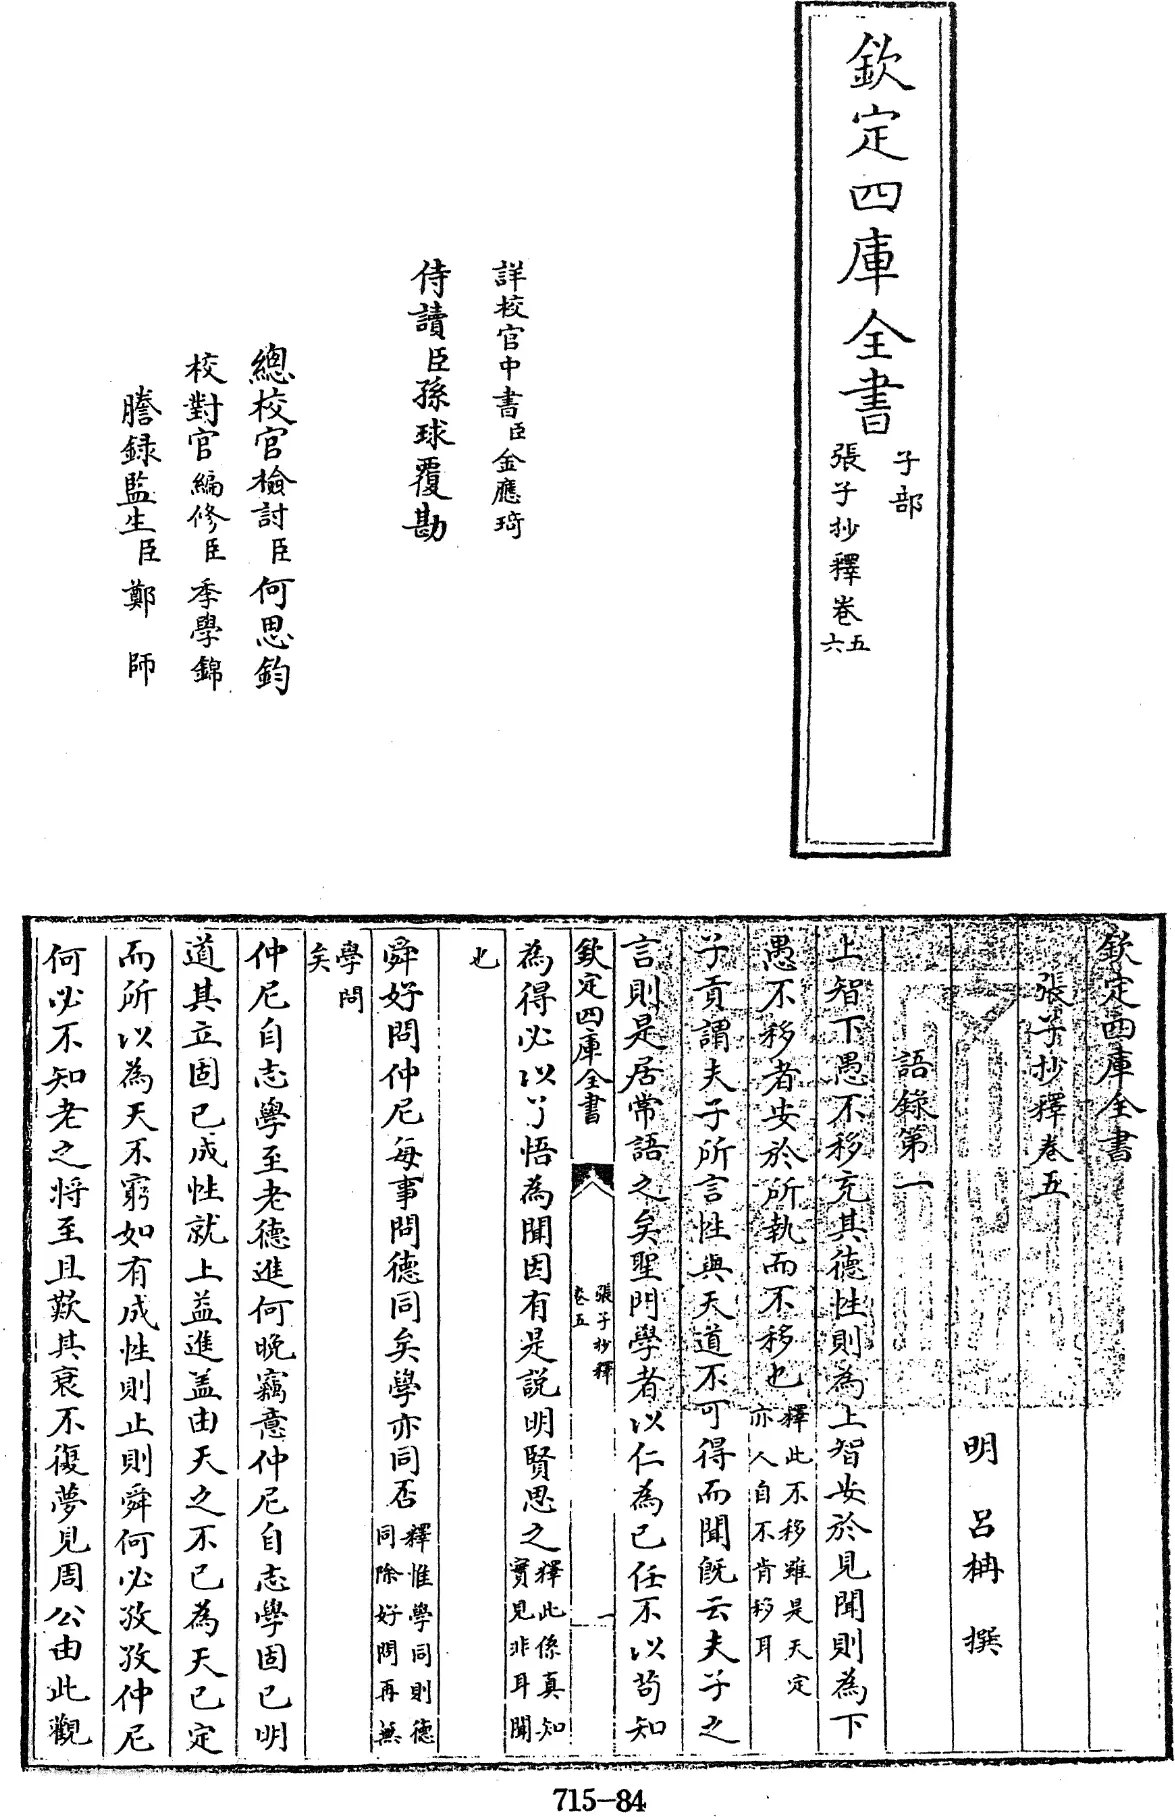 欽定四庫全書
子部
張子抄釋卷五
六
詳校官中書臣金應琦
侍讀臣孫球覆勘
總校官檢討臣何思鈞
校對官編修臣季學錦
謄録監生臣鄭師
欽定四庫全書
張子抄釋卷五
明呂柟撰
語録第一
上智下愚不移充其德性則為上智安於見聞則為下
愚不移者安於所執而不移也釋此不移雖是天定
亦人自不肯移耳
子貢謂夫子所言性與天道不可得而聞既云夫子之
言則是居常語之矣聖門學者以仁為己任不以苟知
欽定四庫全書
張子抄釋
卷五
一
為得必以了悟為聞因有是説明賢思之釋此係真知
實見非耳聞
也
舜好問仲尼每事問德同矣學亦同否釋惟學同則德
同除好問再無
學問
矣
仲尼自志學至老德進何晚竊意仲尼自志學固已明
道其立固已成性就上益進盖由天之不已為天已定
而所以為天不窮如有成性則止則舜何必孜孜仲尼
何必不知老之将至且歎其衰不復夢見周公由此觀
715-84